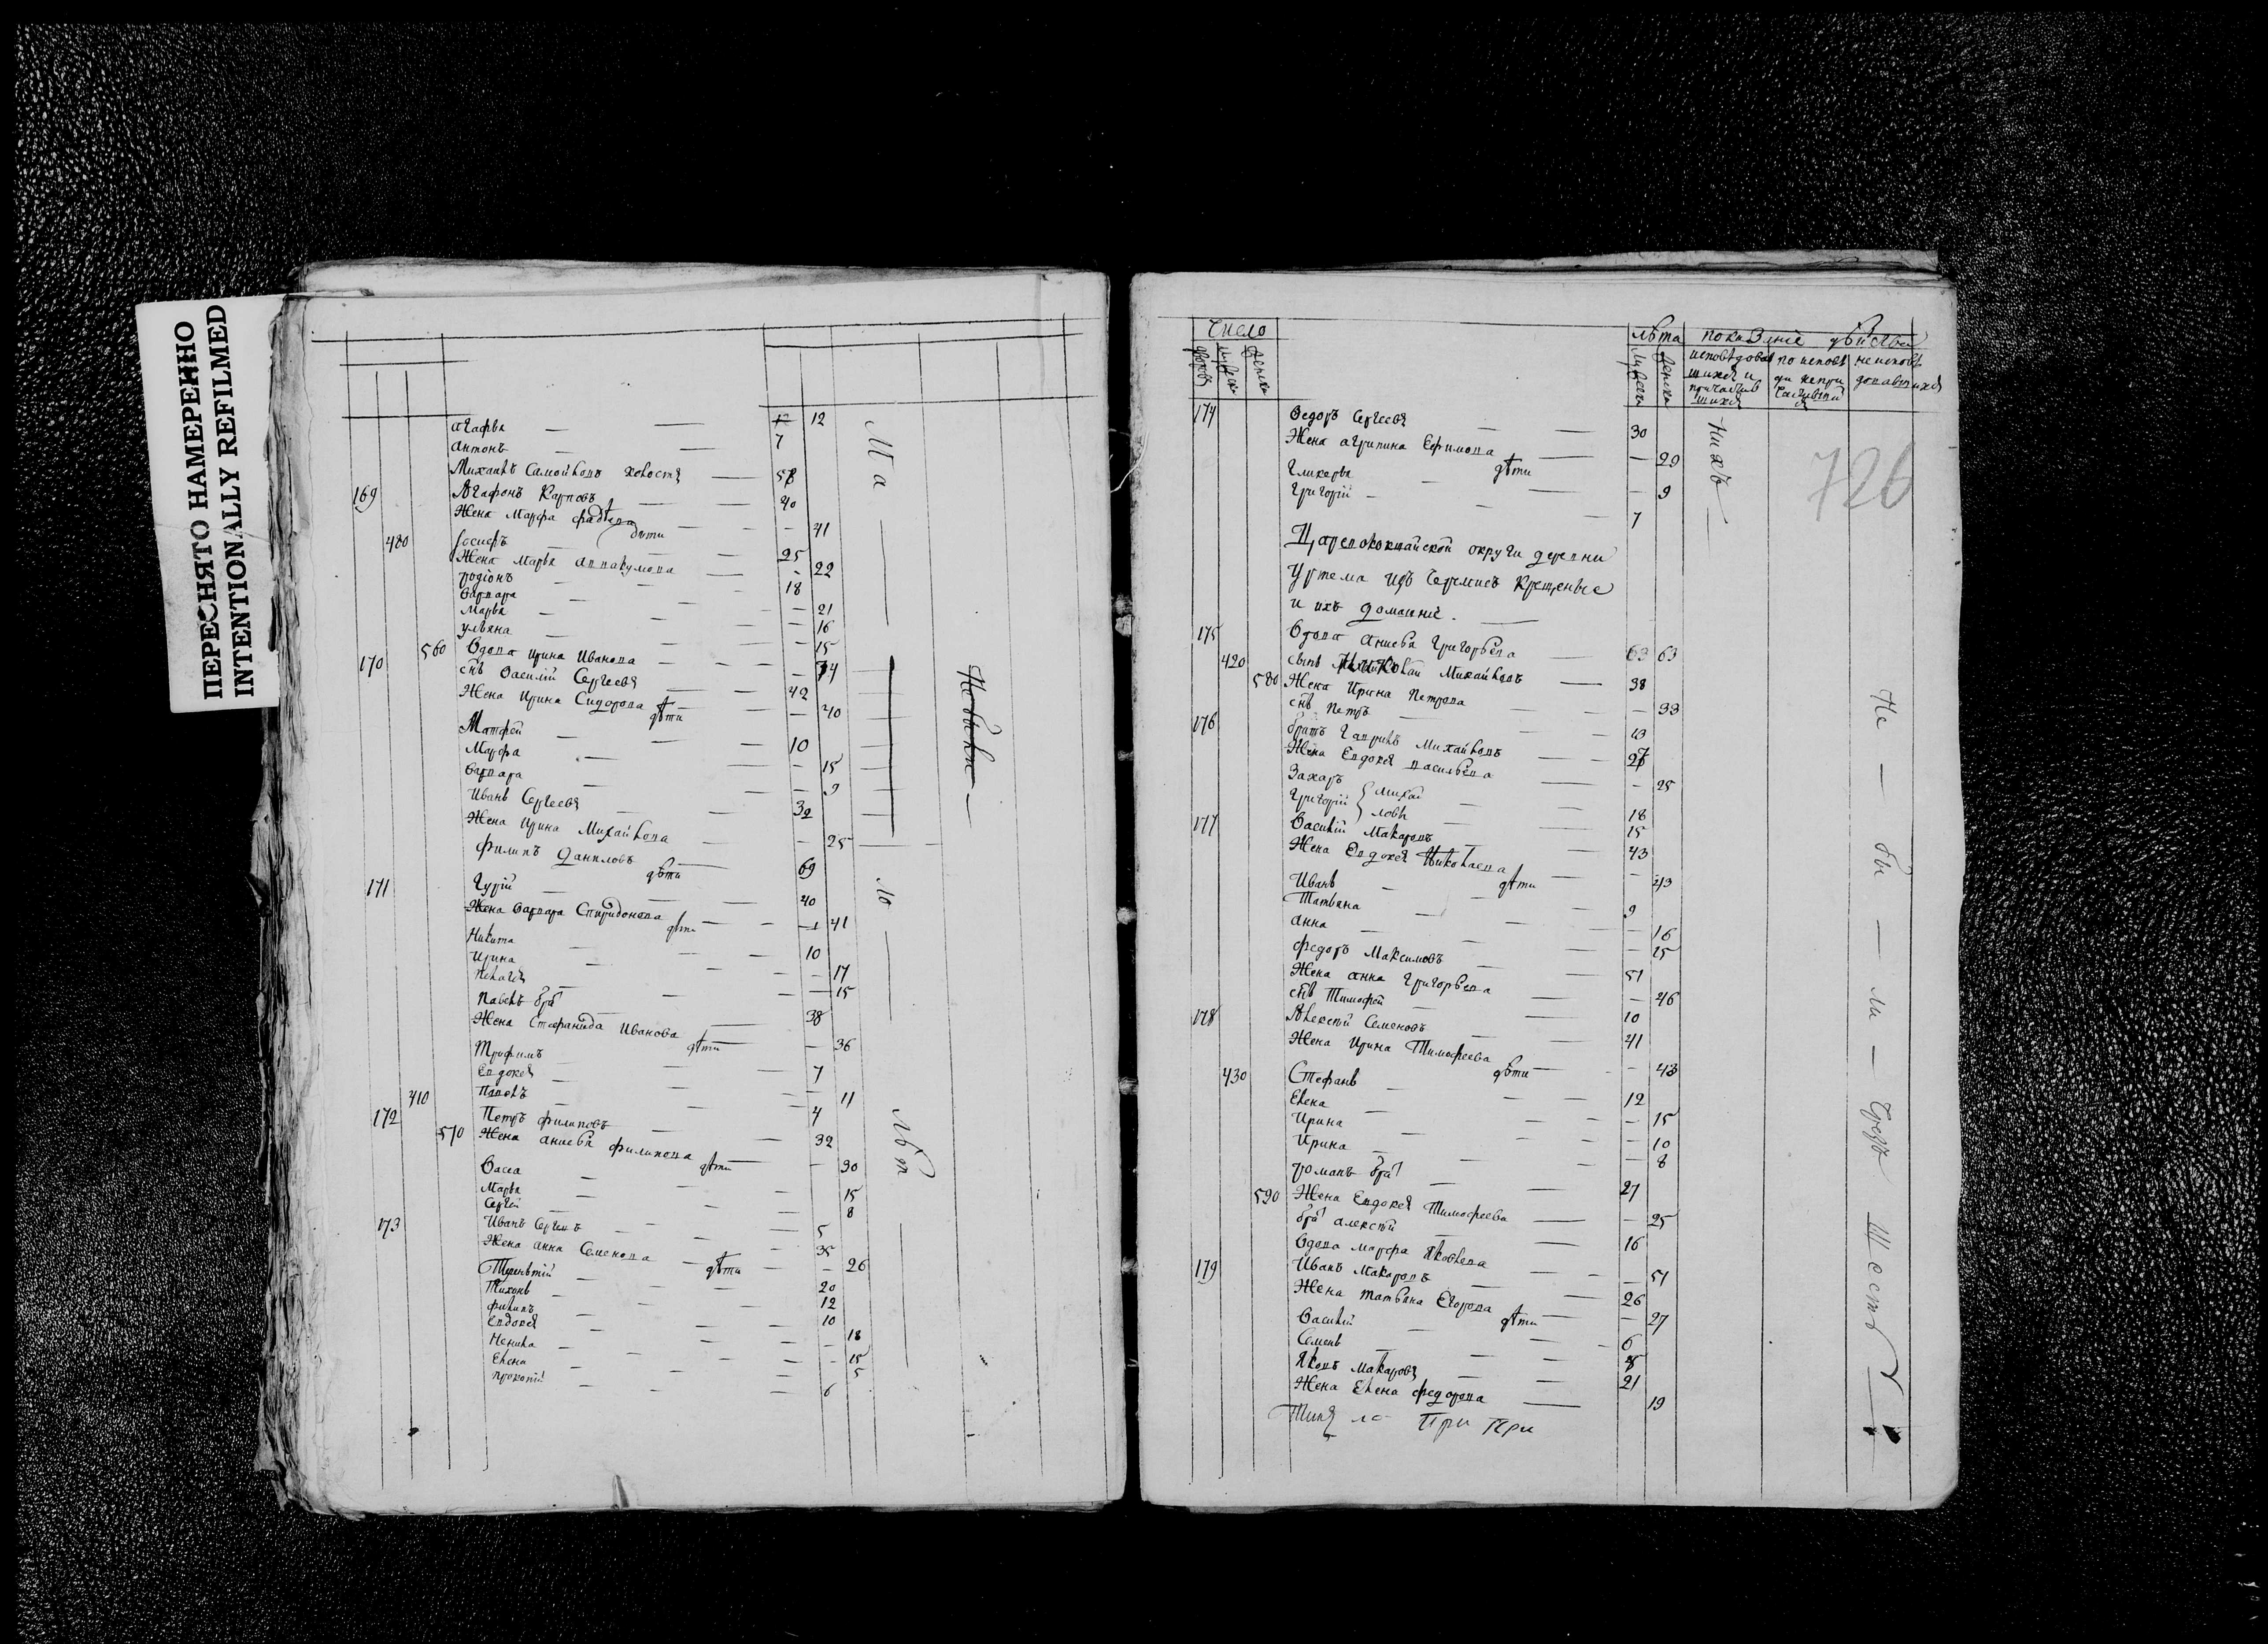 ПЕРЕСНЯТО НАМЕРЕННО
INTENTIONALLY REFILMED
Агафья — — 12 12
Антонъ — — 7
Михаилъ Самойловъ холостя — 58
169 Агафонъ Карповъ — 40
Жена Марфа — — 41
дѣти
480 Іосифъ — 25
Жена Марья — 22
Родіонъ — — 18
Варвара — — 21
Марья — — 16
Ульяна — — 15
170 560 Вдова Ирина Иванова — — 74
снъ Василій Сергеевъ — 42
Жена Ирина Сидорова — — 40
дѣти
Матфей — — 10
Марфа — — 15
Варвара — — 9
Иванъ Сергеевъ — 32
Жена Ирина Михайлова — — 25
Филипъ Даниловъ — 69
дѣти
171 Гурій — — 40
Жена Варвара Спиридонова — — 41
дѣти
Никита — — 10
Ирина — — 17
Пелагея — — 15
Павелъ бра — 38
Жена Стефанида Иванова — — 36
дѣти
Трофимъ — — 7
Евдокея — — 11
410 Павелъ — — 4
172 Петръ Филиповъ — 32
570 Жена Анисья Филипова — — 30
дѣти
Васса — — 15
Марья — — 8
Сергей — — 5
173 Иванъ Сергеевъ — 35
Жена Анна Семенова — — 26
дѣти
Терентій — — 20
Тихонъ — — 12
Филипъ — — 10
Евдокея — — 18
Ненила — — 15
Елена — — 5
Прокопій — — 6
Ма — ло — лѣт —
Небыли —
Число
дворовъ
мужеска
женска
лѣта
мужеска
женска
показаніе дѣйства
исповѣдовав
шихся и
причастив
шихся
по исповѣ
ди непри
частивши
я
неисповѣ
довавшихся
726
нихъ —
174 Ѳедоръ Сергеевъ — 30
Жена Агрипина Ефимова — — 29
дѣти
Гликерья — — 9
Григорій — — 7
Царевококшайской округи деревни
Уртема изъ Черемисъ крещеные
и ихъ домашніе. —
175 Вдова Анисья Григорьева — 63 63
420 сынъ Николай Михайловъ — 38
580 Жена Ирина Петрова — — 33
снъ Петръ — 13
176 братъ Гаврилъ Михайловъ — 27
Жена Евдокея Васильева — — 25
Захаръ } Михай — 18
Григорій } ловы — 15
177 Василій Макаровъ — 43
Жена Евдокея Николаева — — 43
дѣти
Иванъ — — 9
Татьяна — — 16
Анна — — 15
Федоръ Максимовъ — 51
Жена Анна Григорьева — — 46
снъ Тимофей — 10
178 Алексей Семеновъ — 41
Жена Ирина Тимофеева — — 43
дѣти
430 Стефанъ — — 12
Елена — — 15
Ирина — — 10
Ирина — — 8
Романъ бра — 27
590 Жена Евдокея Тимофеева — — 25
бра Алексей — 16
Вдова Марфа Яковлева — — 51
179 Иванъ Макаровъ — 26
Жена Татьяна Егорова — — 27
дѣти
Василій — — 6
Семенъ — —
Яковъ Макаровъ — 21
Жена Елена Федорова — 19
При При
Не — бы — ли — Чрезъ Шесть